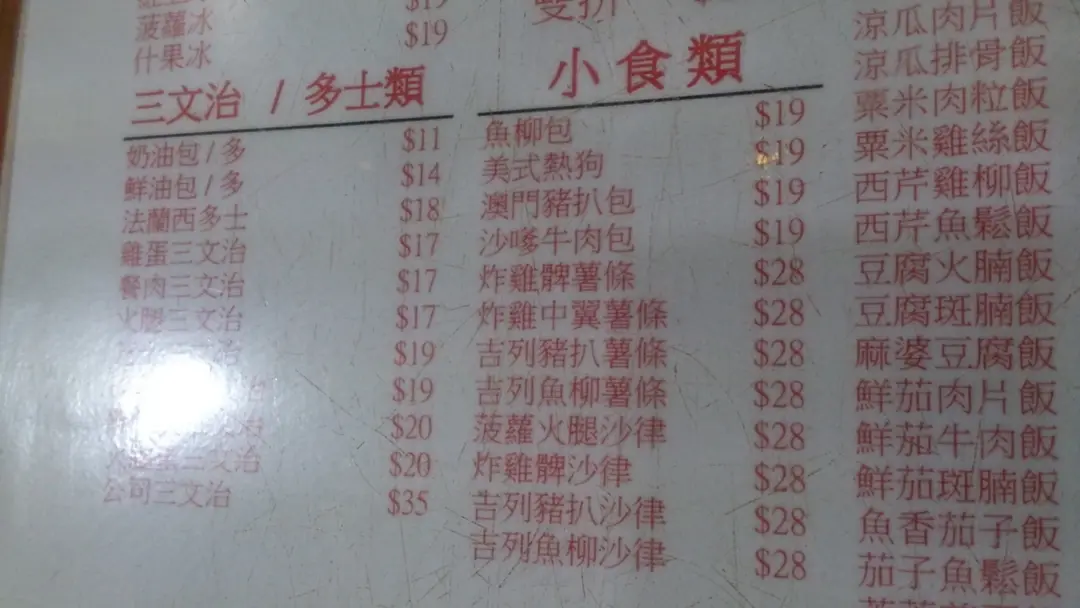 菠蘿冰 $19
什果冰 $19
三文治 / 多士類
奶油包 / 多 $11
鮮油包 / 多 $14
法蘭西多士 $18
雞蛋三文治 $17
餐肉三文治 $17
火腿三文治 $17
三文治 $19
治 $19
文治 $20
蛋三文治 $20
公司三文治 $35
小食類
魚柳包 $19
美式熱狗 $19
澳門豬扒包 $19
沙嗲牛肉包 $19
炸雞髀薯條 $28
炸雞中翼薯條 $28
吉列豬扒薯條 $28
吉列魚柳薯條 $28
菠蘿火腿沙律 $28
炸雞髀沙律 $28
吉列豬扒沙律 $28
吉列魚柳沙律 $28
涼瓜肉片飯
涼瓜排骨飯
粟米肉粒飯
粟米雞絲飯
西芹雞柳飯
西芹魚鬆飯
豆腐火腩飯
豆腐斑腩飯
麻婆豆腐飯
鮮茄肉片飯
鮮茄牛肉飯
鮮茄斑腩飯
魚香茄子飯
茄子魚鬆飯